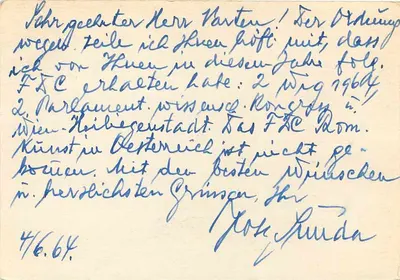 Sehr geehrter Herr Karten! Der Ordnung
wegen teile ich Ihnen höfl. mit, dass
ich von Ihnen in diesem Jahre folg.
FDC erhalten habe: 2 Wig 1964,
2 Parlament. wissensch. Kongress u.
Wien-Heiligenstadt. Das FDC Rom.
Kunst in Oesterreich ist nicht ge-
kommen. Mit den besten Wünschen
u. herzlichsten Grüssen, Ihr
Josef
4/6.64.